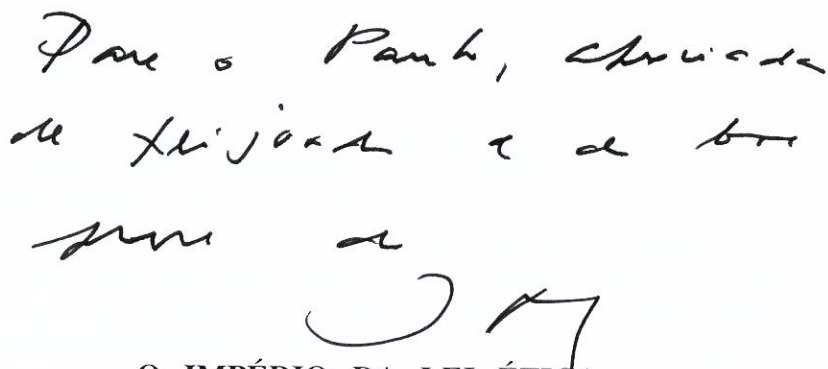 Para o Paulo, apreciador
de feijoada e de boa
prosa de
O IMPÉRIO DA LEI ÉTICA